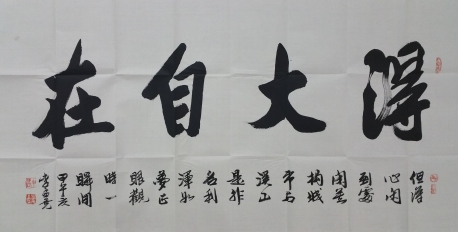 得大自在
但得
心闲
到處
闲莫
拘城
市与
溪山
是非
名利
渾如
夢正
眼觀
時一
瞬间
甲午